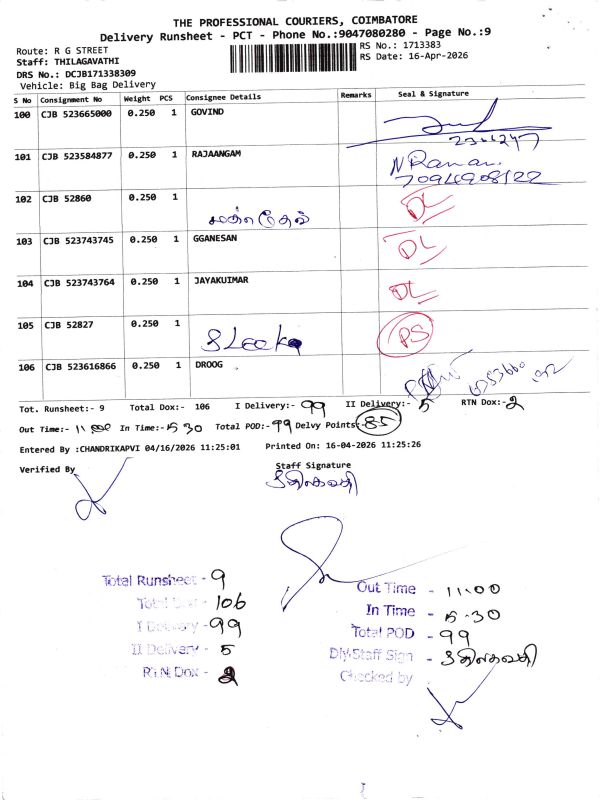 THE PROFESSIONAL COURIERS, COIMBATORE
Delivery Runsheet - PCT - Phone No.:9047080280 - Page No.:9
Route: R G STREET
RS No.: 1713383
Staff: THILAGAVATHI
RS Date: 16-Apr-2026
DRS No.: DCJB171338309
Vehicle: Big Bag Delivery
S No Consignment No Weight PCS Consignee Details Remarks Seal & Signature
100 CJB 523665000 0.250 1 GOVIND
101 CJB 523584877 0.250 1 RAJAANGAM N Raman.
7094908122
102 CJB 52860 0.250 1 DL
103 CJB 523743745 0.250 1 GGANESAN DL
104 CJB 523743764 0.250 1 JAYAKUIMAR DL
105 CJB 52827 0.250 1 PS
106 CJB 523616866 0.250 1 DROOG
Tot. Runsheet:- 9 Total Dox:- 106 I Delivery:- 99 II Delivery:- 5 RTN Dox:- 2
Out Time:- 11.00 In Time:- 5.30 Total POD:- 99 Delvy Points:- 85
Entered By :CHANDRIKAPVI 04/16/2026 11:25:01 Printed On: 16-04-2026 11:25:26
Verified By Staff Signature
திலகவதி
Total Runsheet - 9
Total Dox - 106
I Delivery - 99
II Delivery - 5
RTN Dox - 2
Out Time - 11.00
In Time - 5.30
Total POD - 99
Dly Staff Sign - திலகவதி
Checked by